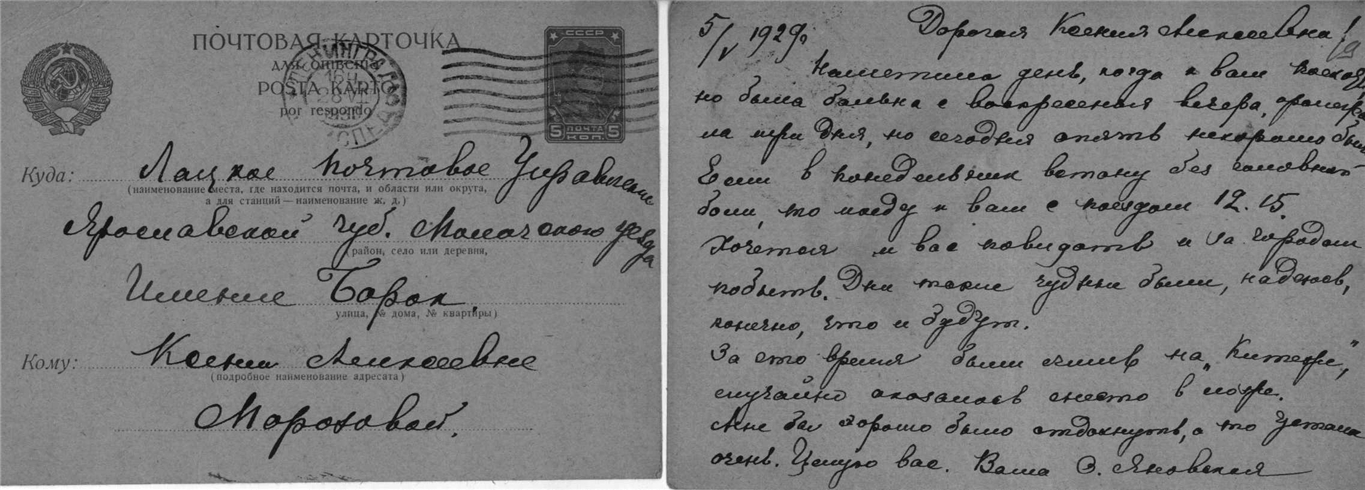 ПОЧТОВАЯ КАРТОЧКА
POŜTA KARTO
por respondo
СССР
5 ПОЧТА 5
КОП.
Куда: Лацкое почтовое Управление
(наименование места, где находится почта, и области или округа,
а для станций — наименование ж. д.)
Ярославской губ. Мологского уезда
(район, село или деревня,
Имение Борок,
улица, № дома, № квартиры)
Кому: Ксении Алексеевне
(подробное наименование адресата)
Морозовой.
5/V 1929г. Дорогая Ксения Алексеевна!
Наметила день, когда к вам
но была больна с воскресения вечера,
на три дня, но сегодня опять нехорошо
Если в понедельник встану без головной
боли, то поеду к вам с поездом 12.15.
Хочется и вас повидать и за городом
побыть. Дни такие чудные были, надеюсь,
конечно, что и будут.
За это время были лишь на „Китеже",
случайно оказалось место в ложе.
Мне бы хорошо было отдохнуть, а то устала
очень. Целую вас. Ваша Э. Яновская